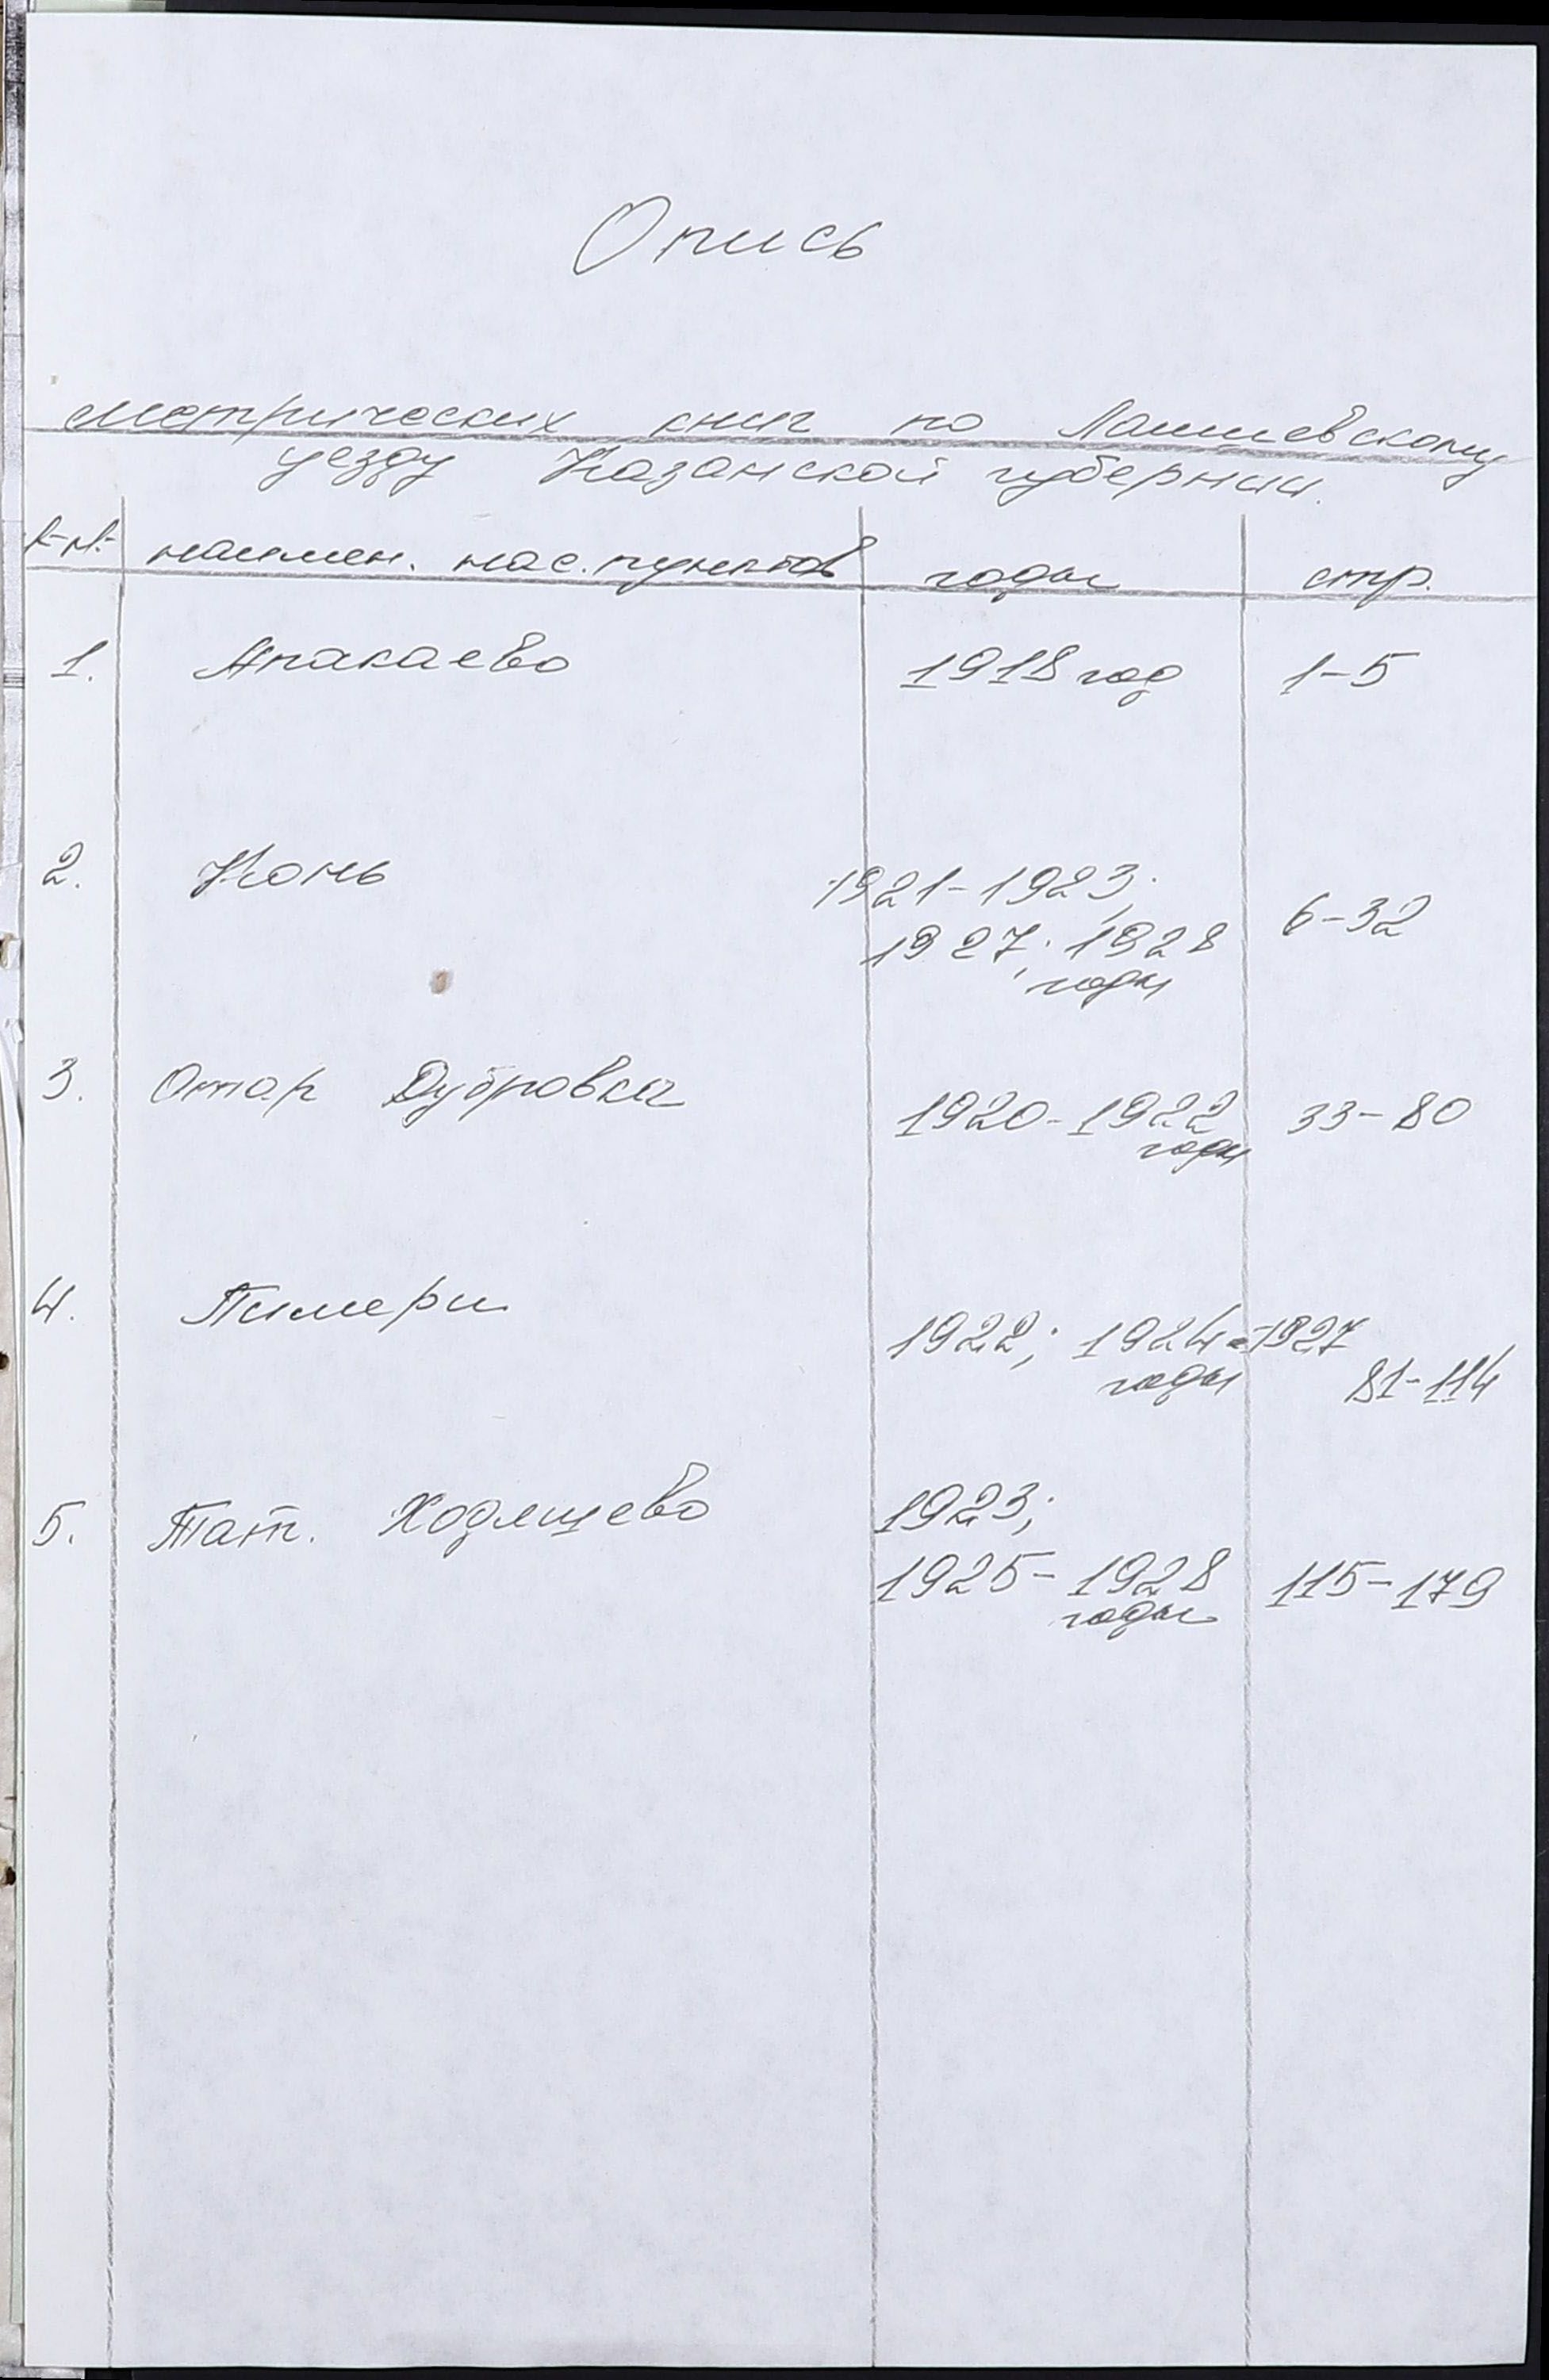 Опись
метрических книг по Лаишевскому
уезду Казанской губернии.
наимен. нас. пунктов годы стр.
1. Апакаево 1918 год 1-5
2. Конь 1921-1923; 6-32
1927; 1928
годы
3. Отар Дубровка 1920-1922 33-80
годы
4. Пимери 1922; 1924-1927
годы 81-114
5. Тат. Ходяшево 1923;
1925-1928 115-179
годы